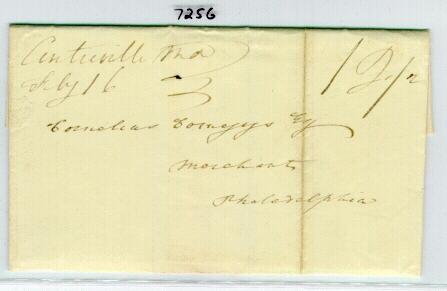 7256
Centreville Md
Feby 16
Cornelius Comegys Esq
Merchant
Philadelphia